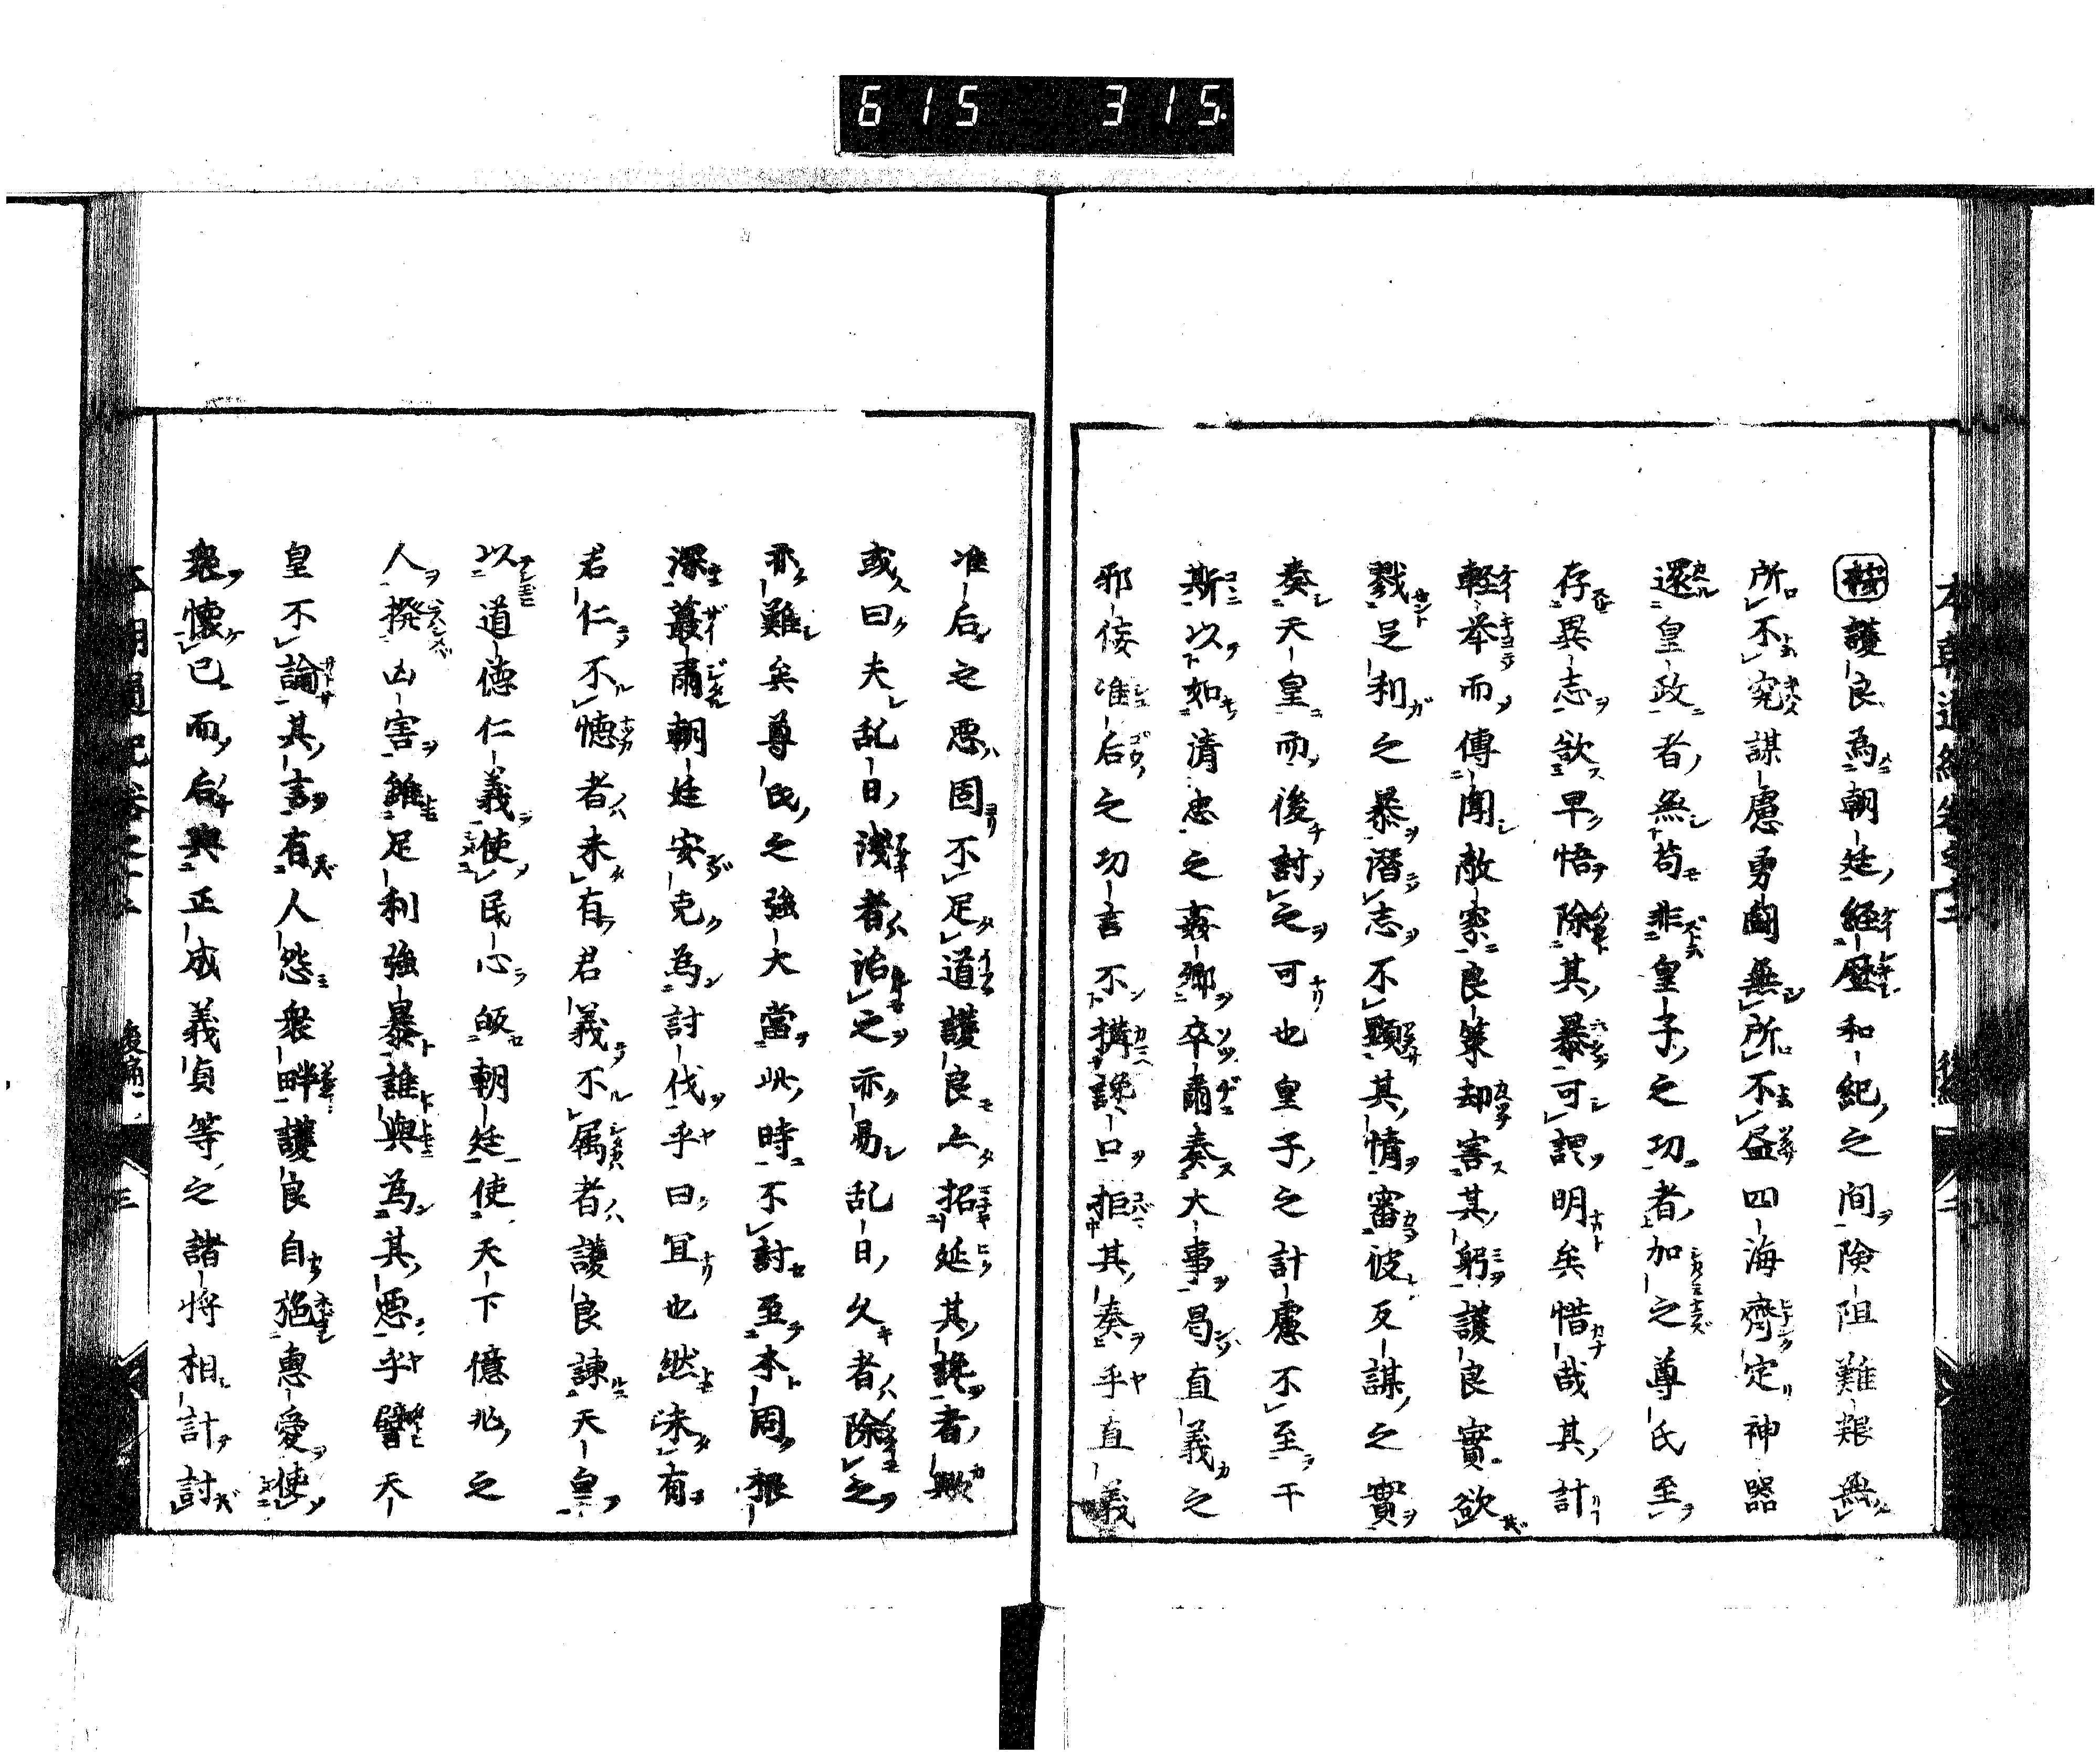 615 315.
按護良為朝廷経歴和紀之間険阻難艱無
所不究謀慮勇闘無所不盡四海齊定神器
還皇政者無苟非皇子之功者加之尊氏至
存異志欲早悟除其暴可謂明矣惜哉其計
軽挙而傳聞敵家良策却害其躬護良實欲
戮足利之暴潜志不顕其情審彼反謀之實
奏天皇而後討之可也皇子之計慮不至于
斯以如清忠之姦郷卒爾奏大事曷直義之
邪侫准后之功言不搆讒口拒其奏乎直義
准后之悪固不足道護良亦招延其讒者歟
或曰夫乱日浅者治之亦易乱日久者除之
亦難矣尊氏之強大當此時不討至本固根
深蕞爾朝廷安克為討伐乎曰冝也然未有
君仁不懐者未有君義不属者護良諌天皇
以道徳仁義使民心皈朝廷使天下億兆之
人撥凶害雖足利強暴誰與為其悪乎譬天
皇不論其言有人怨衆畔護良自施惠愛使
衆懐已而后與正成義貞等之諸将相計討